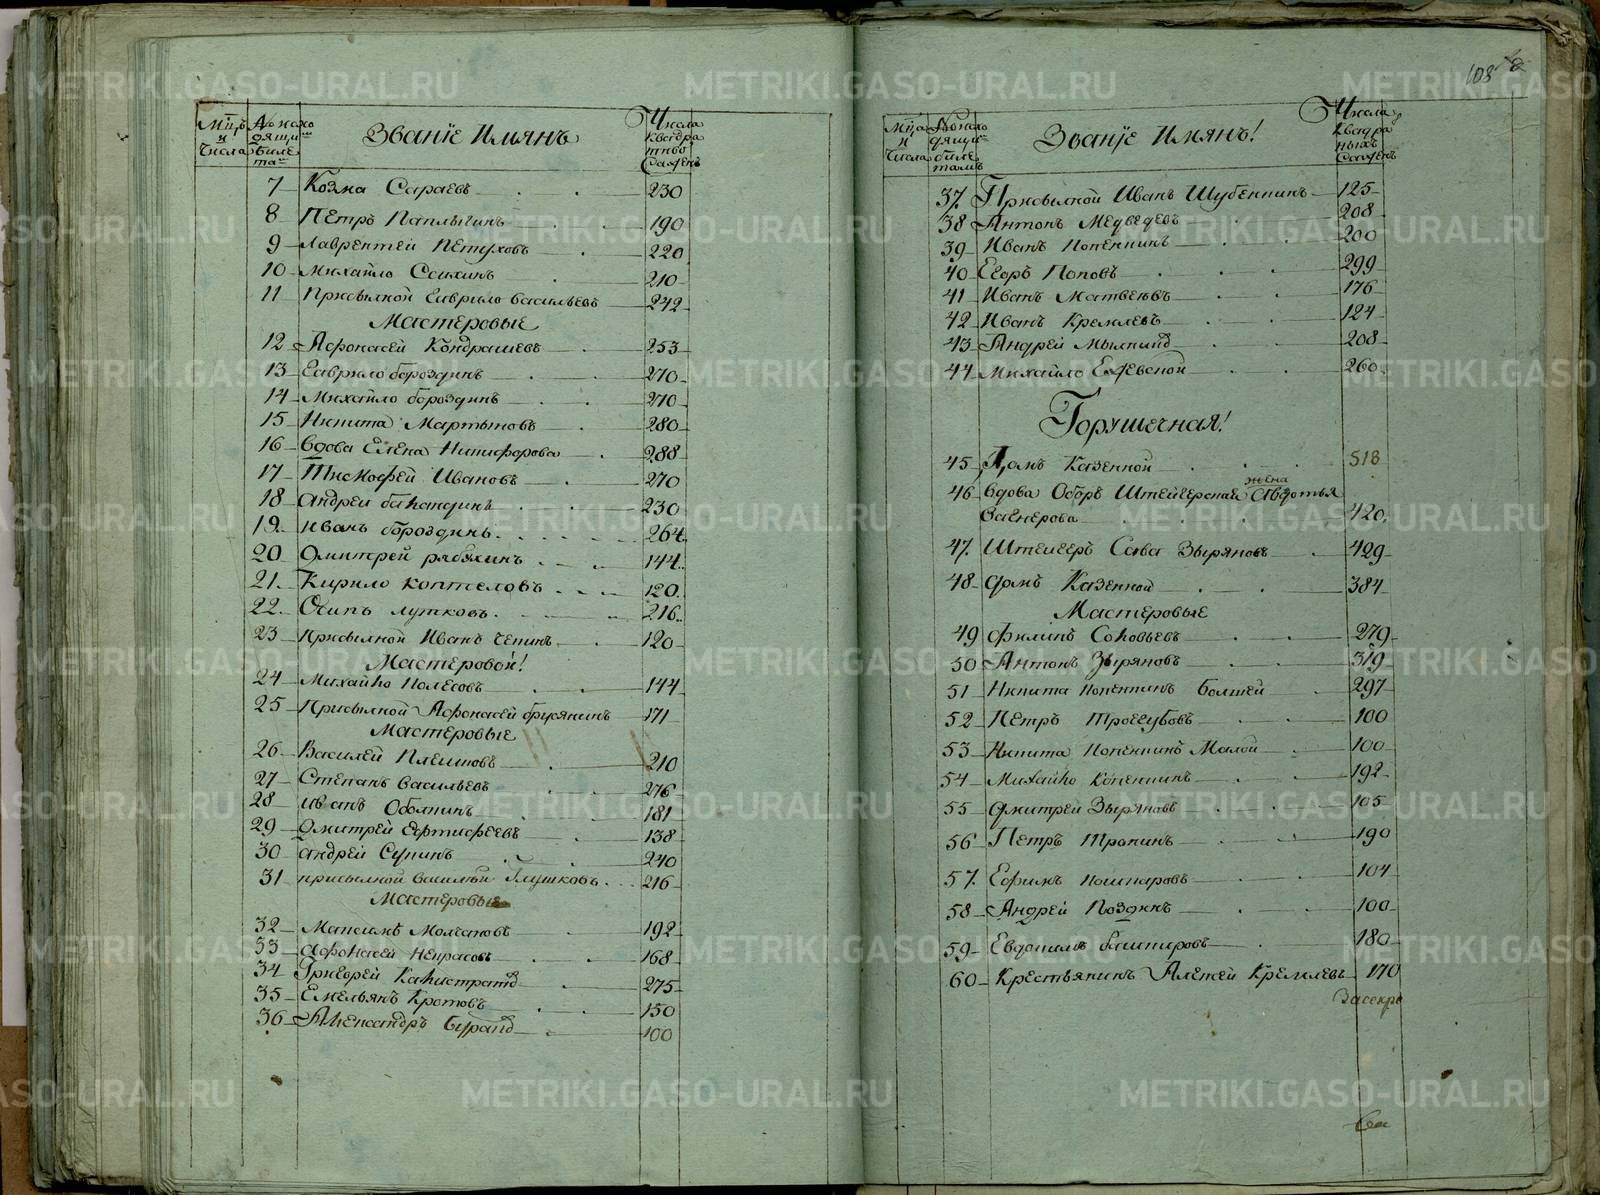 Званїе Имянъ
Числа
квадра
тныхъ
Сажень
7 Козма Сараевъ 230
8 Петръ Паплыгинъ 190
9 Лаврентей Петуховъ 220
10 Михайло 210
11 Присылной Гаврило Васильевъ 242
Мастеровые
12 Афонасей Кондрашевъ 253
13 Гаврило бороздинъ 270
14 Михайло бороздинъ 270
15 Никита Мартыновъ 280
16 вдова Елена Никифорова 288
17 Тимофей Ивановъ 270
18 андрей 230
19 иванъ бороздинъ 264
20 Дмитрей рябухинъ 144
21 Кирило коптеловъ 120
22 Осипъ лутковъ 216
23 Присылной Иванъ чепинъ 120
Мастеровой!
24 Михайло Колесовъ 144
25 Присылной Афонасей брусянинъ 171
Мастеровые
26 Василей Плешковъ 210
27 Степанъ Васильевъ 276
28 иванъ Оболкинъ 181
29 Дмитрей Ефтифеевъ 138
30 андрей Супинъ 240
31 присылной Василей Глушковъ 216
Мастеровые
32 Максимъ Молчановъ 192
33 Афонасей Некрасовъ 168
34 Григорей Калистратовъ 275
35 Емельянъ Кротовъ 150
36 Александръ 100
108
Мца
и
Числа
Званїе Имянъ!
Числа
Квадра
ныхъ
Сажень
37 Присылной Иванъ Шубенкинъ 125
38 Антонъ Медведевъ 208
39 Иванъ Копенкинъ 200
40 Егоръ Поповъ 299
41 Иванъ Матвеевъ 176
42 Иванъ Кремлевъ 124
43 Андрей 208
44 Михайло 260
Горушечная!
45 Домъ Казенной 518
46 вдова Оберъ Штейгерская жена Авдотья
Вагнерова 420
47 Штейгеръ Сава Зыряновъ 429
48 домъ Казенной 384
Мастеровые
49 Филипъ Соловьевъ 279
50 Антонъ Зыряновъ 319
51 Никита Копенкинъ Болшей 297
52 Петръ Троегубовъ 100
53 Никита Копенкинъ Малой 100
54 Михайло Копенкинъ 192
55 Дмитрей Зыряновъ 105
56 Петръ Тропинъ 190
57 Ефимъ Кошкаровъ 104
58 Андрей Поздинъ 100
59 Евдокимъ 180
60 Крестьянинъ Алексей Кремлевъ 170
METRIKI.GASO-URAL.RU